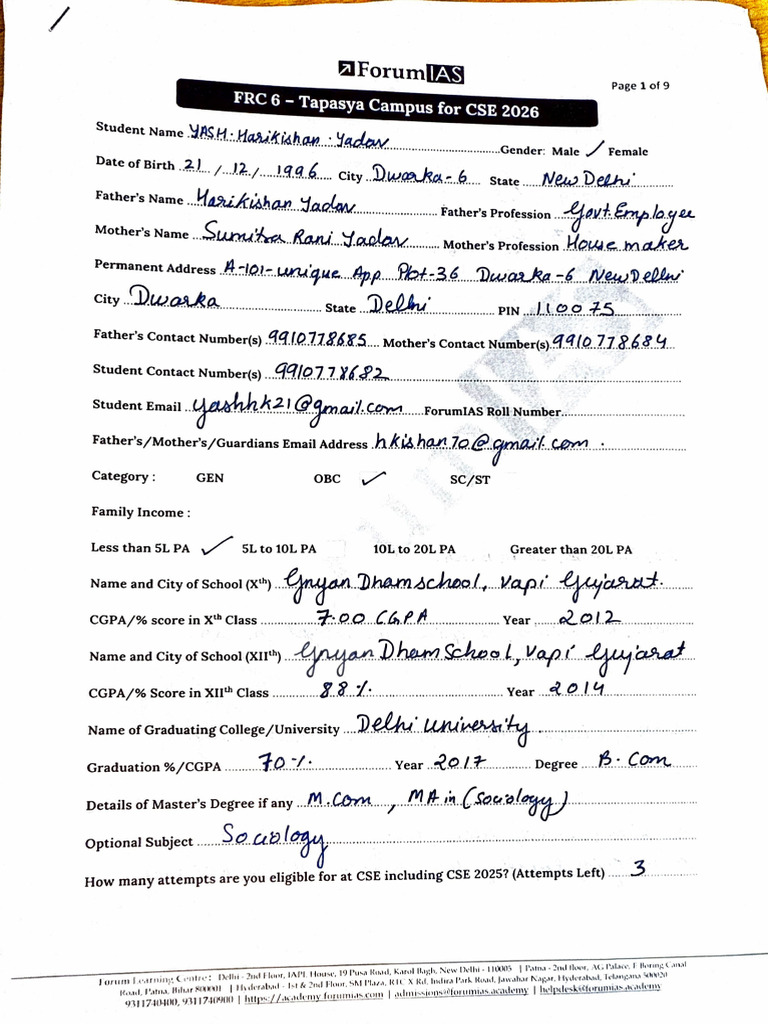 ForumIAS
Page 1 of 9
FRC 6 – Tapasya Campus for CSE 2026
Student Name YASH Harikishan Yadav Gender: Male ✓ Female
Date of Birth 21 / 12 / 1996 City Dwarka-6 State New Delhi
Father's Name Harikishan Yadav Father's Profession Govt. Employee
Mother's Name Sumitra Rani Yadav Mother's Profession House maker
Permanent Address A-101-unique App Plot-36 Dwarka-6 New Delhi
City Dwarka State Delhi PIN 110075
Father's Contact Number(s) 9910778685 Mother's Contact Number(s) 9910778684
Student Contact Number(s) 9910778682
Student Email yashhk21@gmail.com ForumIAS Roll Number
Father's/Mother's/Guardians Email Address hkishan70@gmail.com .
Category : GEN OBC ✓ SC/ST
Family Income :
Less than 5L PA ✓ 5L to 10L PA 10L to 20L PA Greater than 20L PA
Name and City of School (Xth) Gnyan Dham school, Vapi Gujarat.
CGPA/% score in Xth Class 7.00 CGPA Year 2012
Name and City of School (XIIth) Gnyan Dham School, Vapi Gujarat
CGPA/% Score in XIIth Class 88 % Year 2014
Name of Graduating College/University Delhi University .
Graduation %/CGPA 70 % Year 2017 Degree B. Com
Details of Master's Degree if any M.Com , MA in (Sociology)
Optional Subject Sociology
How many attempts are you eligible for at CSE including CSE 2025? (Attempts Left) 3
Forum Learning Centre : Delhi - 2nd Floor, IAPL House, 19 Pusa Road, Karol Bagh, New Delhi - 110005 | Patna - 2nd floor, AG Palace, E Boring Canal
Road, Patna, Bihar 800001 | Hyderabad - 1st & 2nd Floor, SM Plaza, RTC X Rd, Indira Park Road, Jawahar Nagar, Hyderabad, Telangana 500020
9311740400, 9311740900 | https://academy.forumias.com | admissions@forumias.academy | helpdesk@forumias.academy